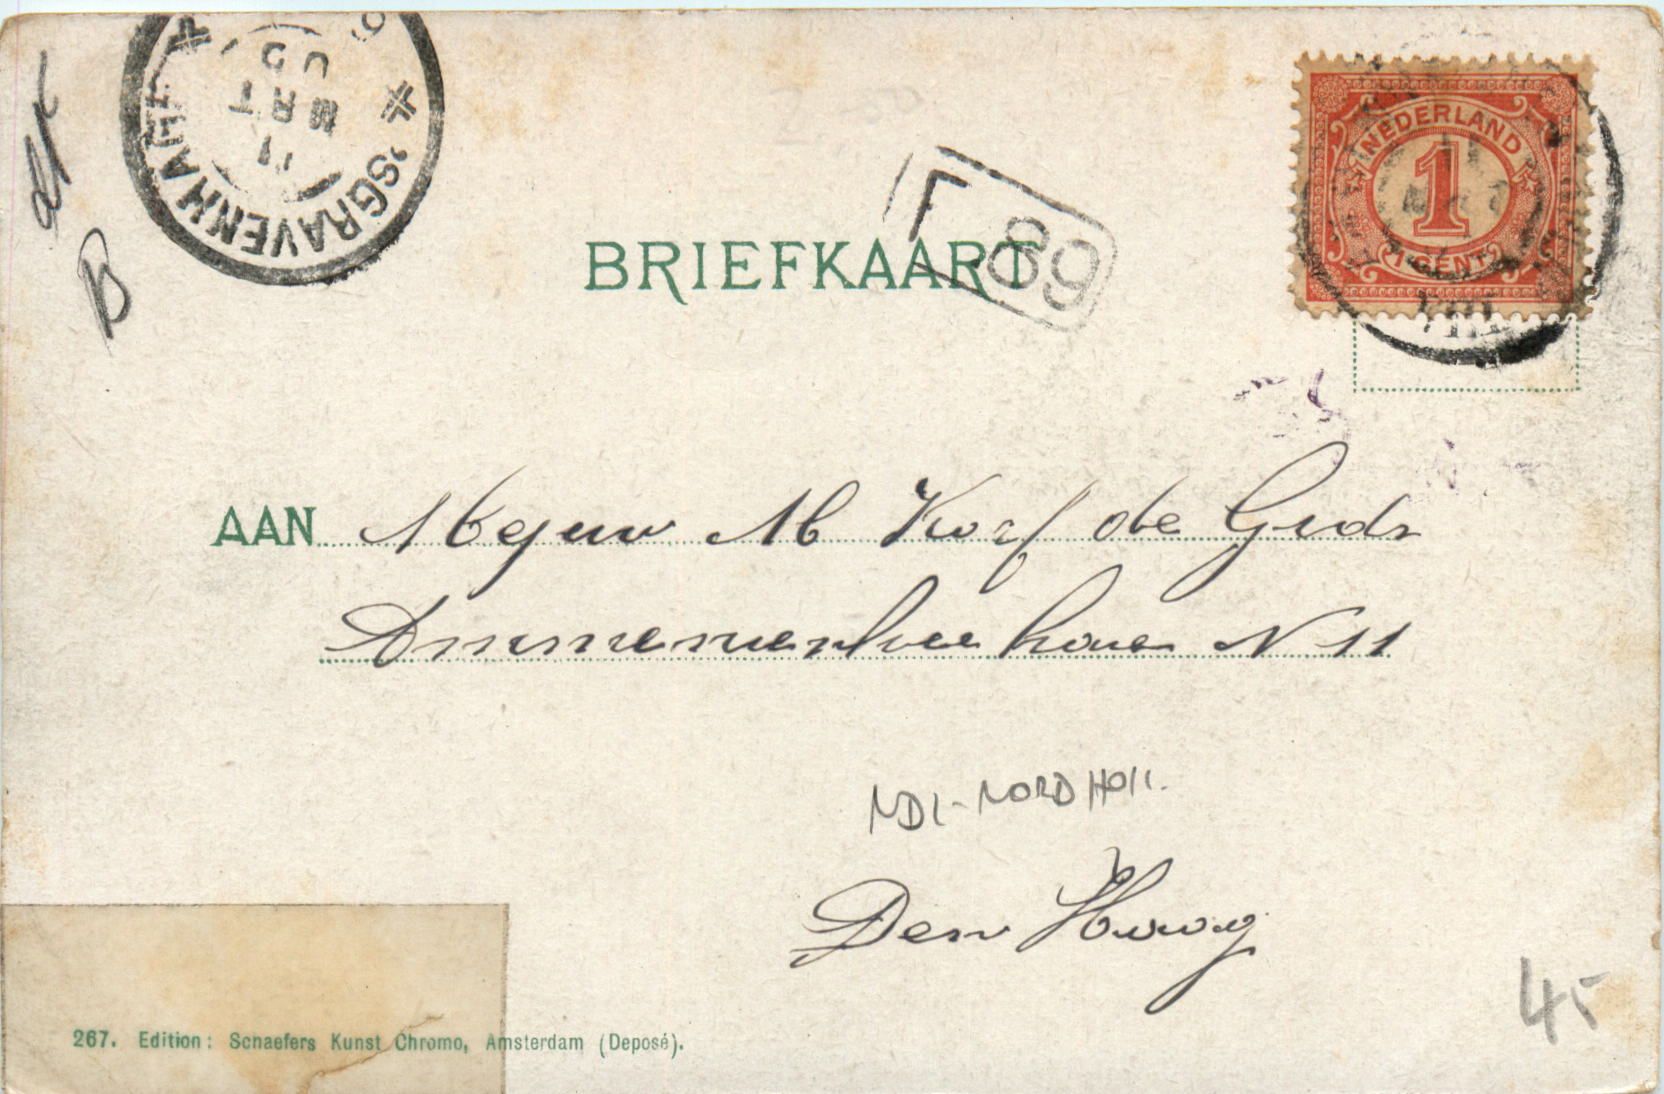 'SGRAVENHAGE
11
MRT
L 89
BRIEFKAART
NEDERLAND
1
1 CENT
AAN Mejuw M Korf de Gids
N 11
NDL - NORD HOLL.
Den Haag
45
267. Edition: Schaefers Kunst Chromo, Amsterdam (Deposé).